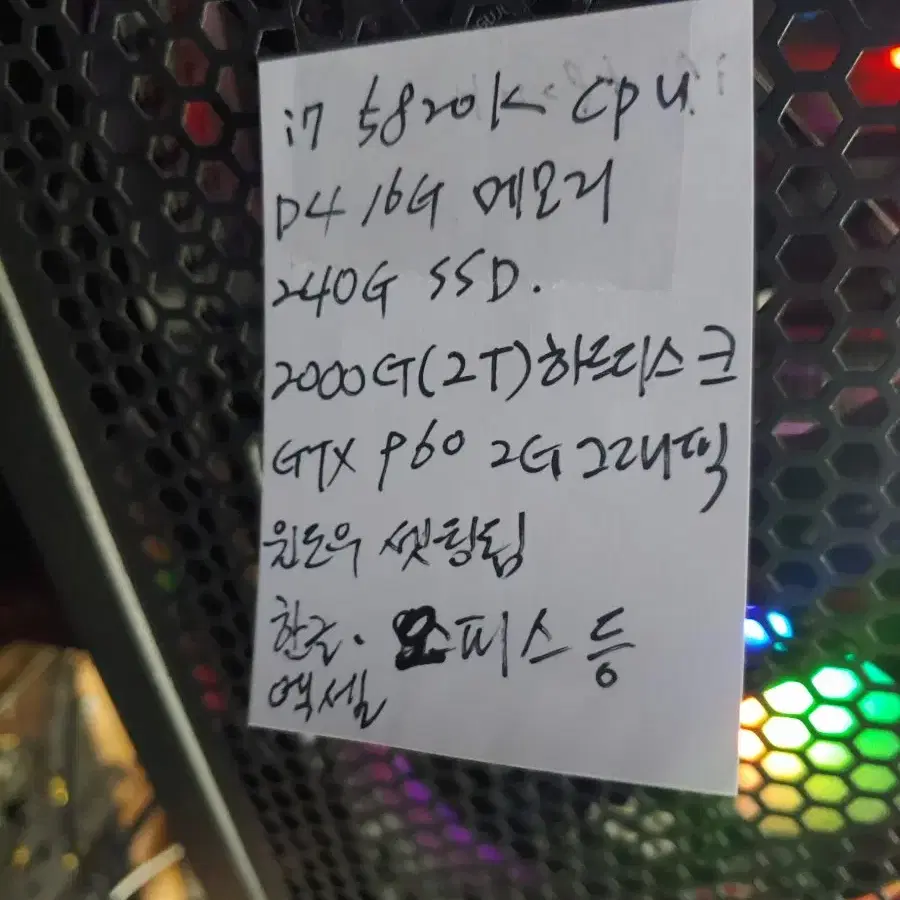 i7 5820K CPU
D4 16G 메모리
240G SSD.
2000G(2T)하드디스크
GTX 960 2G 그래픽
윈도우 셋팅됨
한글. 오피스 등
엑셀